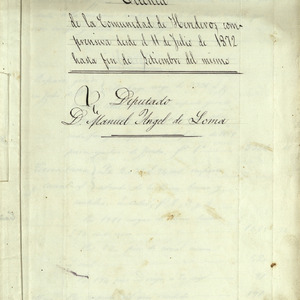 Cuenta
de la Comunidad de Henderoz com-
prensiva desde el 11 de Julio de 1872
hasta fin de Setiembre del mismo
Deputado
D. Manuel Angel de Loma